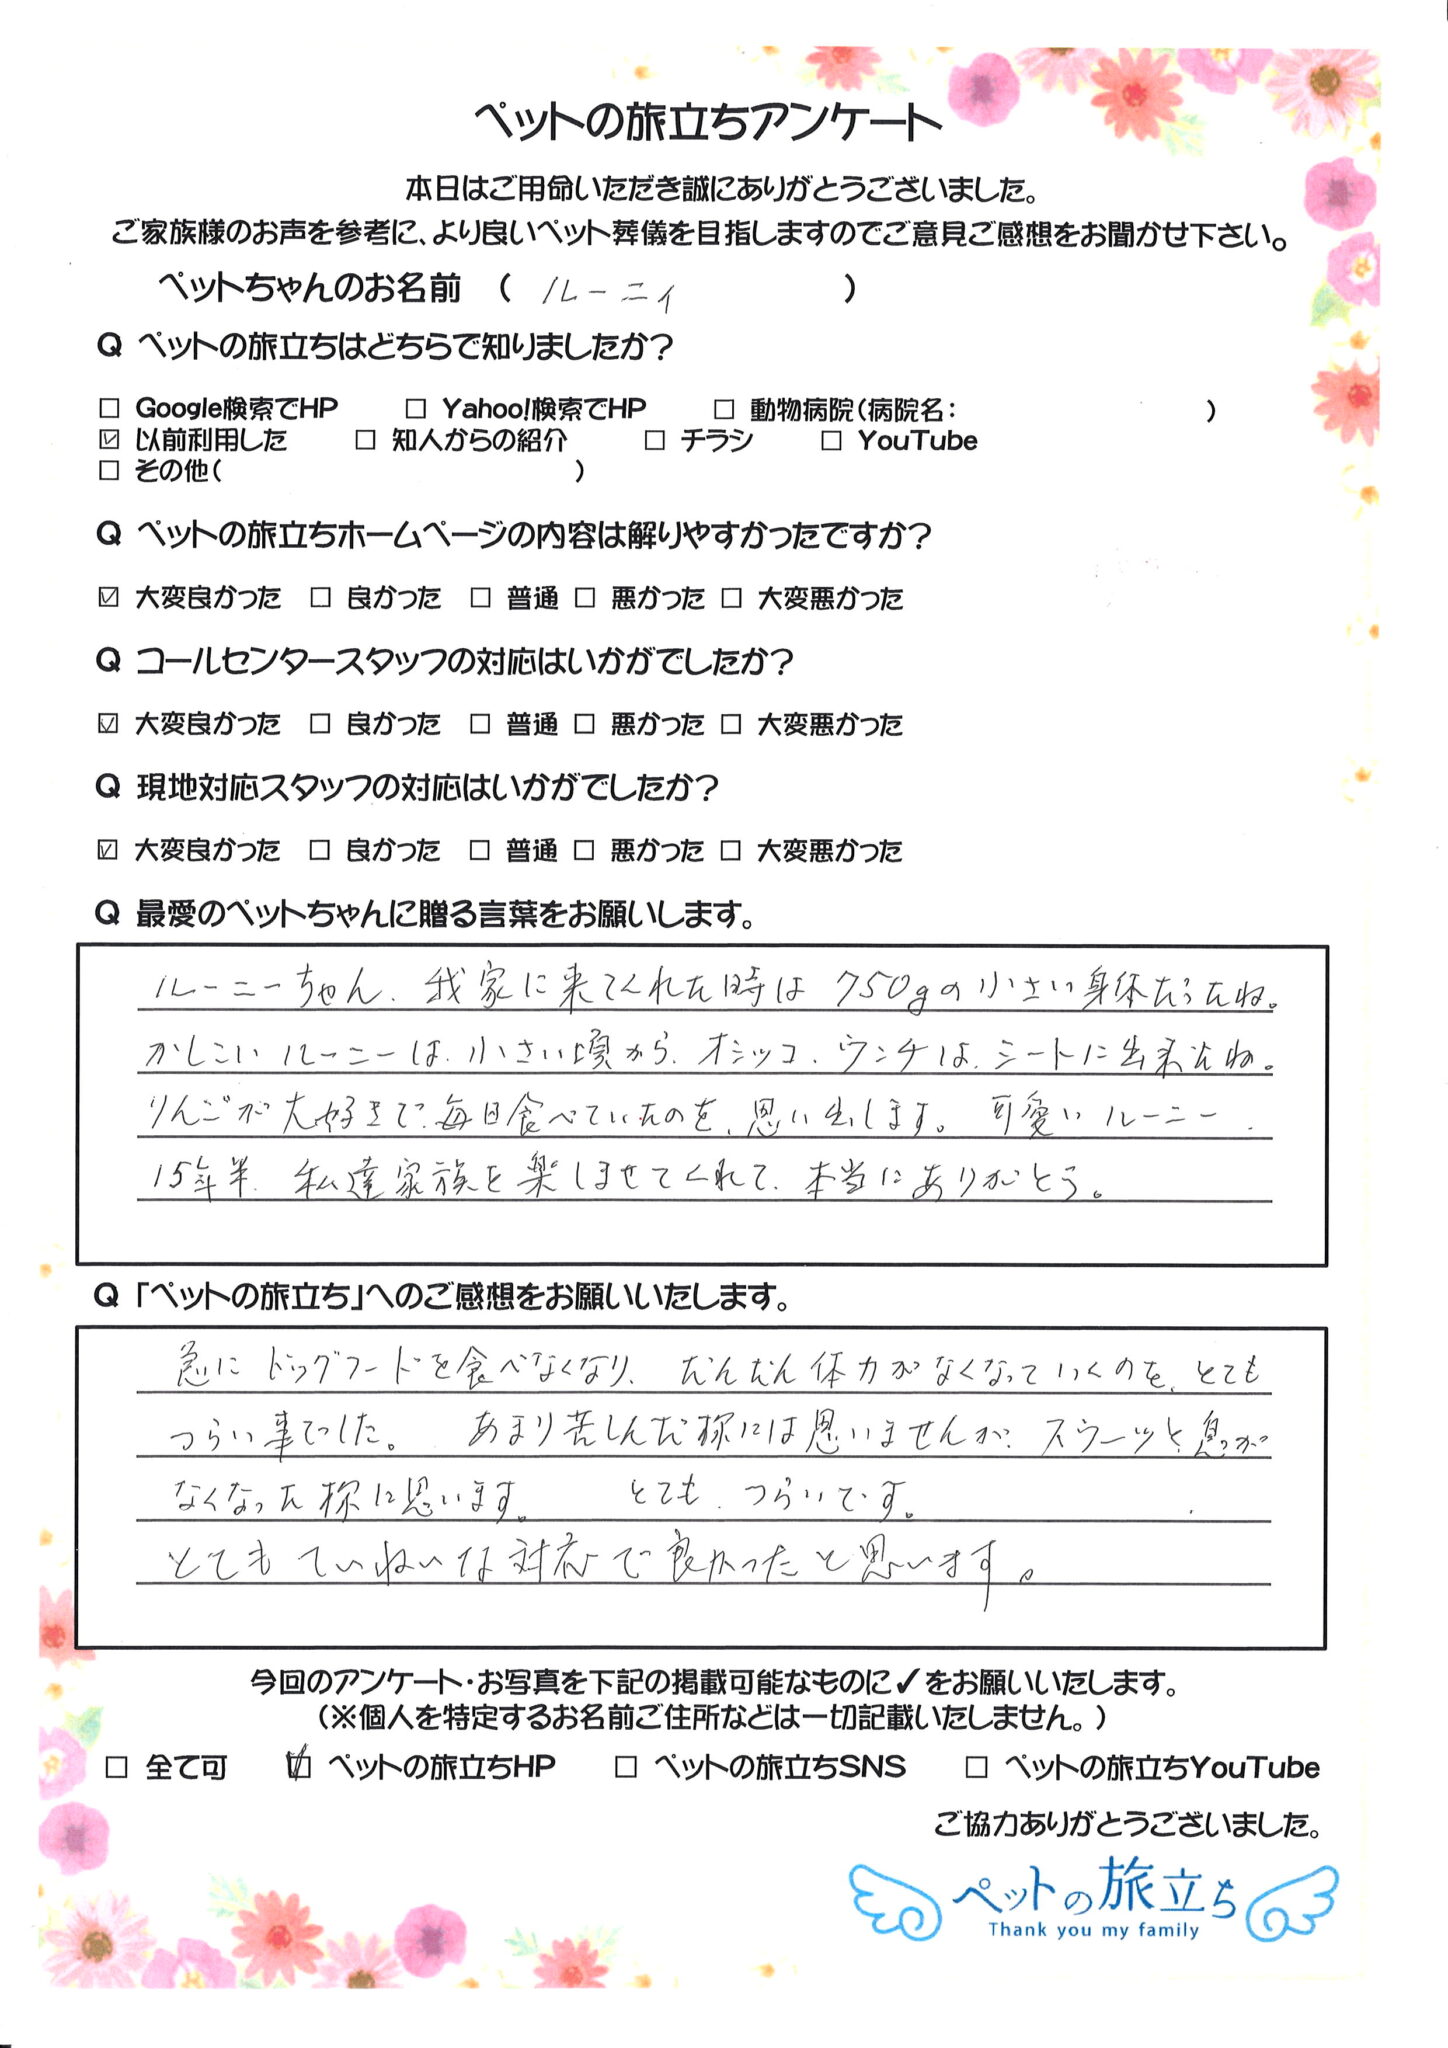 ペットの旅立ちアンケート
本日はご用命いただき誠にありがとうございました。
ご家族様のお声を参考に、より良いペット葬儀を目指しますのでご意見ご感想をお聞かせ下さい。
ペットちゃんのお名前 ( ルーニィ )
Q ペットの旅立ちはどちらで知りましたか?
☐ Google検索でHP ☐ Yahoo!検索でHP ☐ 動物病院(病院名: )
☑ 以前利用した ☐ 知人からの紹介 ☐ チラシ ☐ YouTube
☐ その他( )
Q ペットの旅立ちホームページの内容は解りやすかったですか?
☑ 大変良かった ☐ 良かった ☐ 普通 ☐ 悪かった ☐ 大変悪かった
Q コールセンタースタッフの対応はいかがでしたか?
☑ 大変良かった ☐ 良かった ☐ 普通 ☐ 悪かった ☐ 大変悪かった
Q 現地対応スタッフの対応はいかがでしたか?
☑ 大変良かった ☐ 良かった ☐ 普通 ☐ 悪かった ☐ 大変悪かった
Q 最愛のペットちゃんに贈る言葉をお願いします。
ルーニーちゃん、我家に来てくれた時は750gの小さい身体だったね。
かしこいルーニーは、小さい頃から、オシッコ、ウンチは、シートに出来たね。
りんごが大好きで、毎日食べていたのを、思い出します。可愛いルーニー、
15年半、私達家族を楽しませてくれて、本当にありがとう。
Q 「ペットの旅立ち」へのご感想をお願いいたします。
急にドッグフードを食べなくなり、だんだん体力がなくなっていくのを、とても
つらい事でした。 あまり苦しんだ様には思いませんが、スウーッと、息が
なくなった様に思います。 とても、つらいです。
とてもていねいな対応で良かったと思います。
今回のアンケート・お写真を下記の掲載可能なものに✓をお願いいたします。
(※個人を特定するお名前ご住所などは一切記載いたしません。)
☐ 全て可 ☑ ペットの旅立ちHP ☐ ペットの旅立ちSNS ☐ ペットの旅立ちYouTube
ご協力ありがとうございました。
ペットの旅立ち
Thank you my family